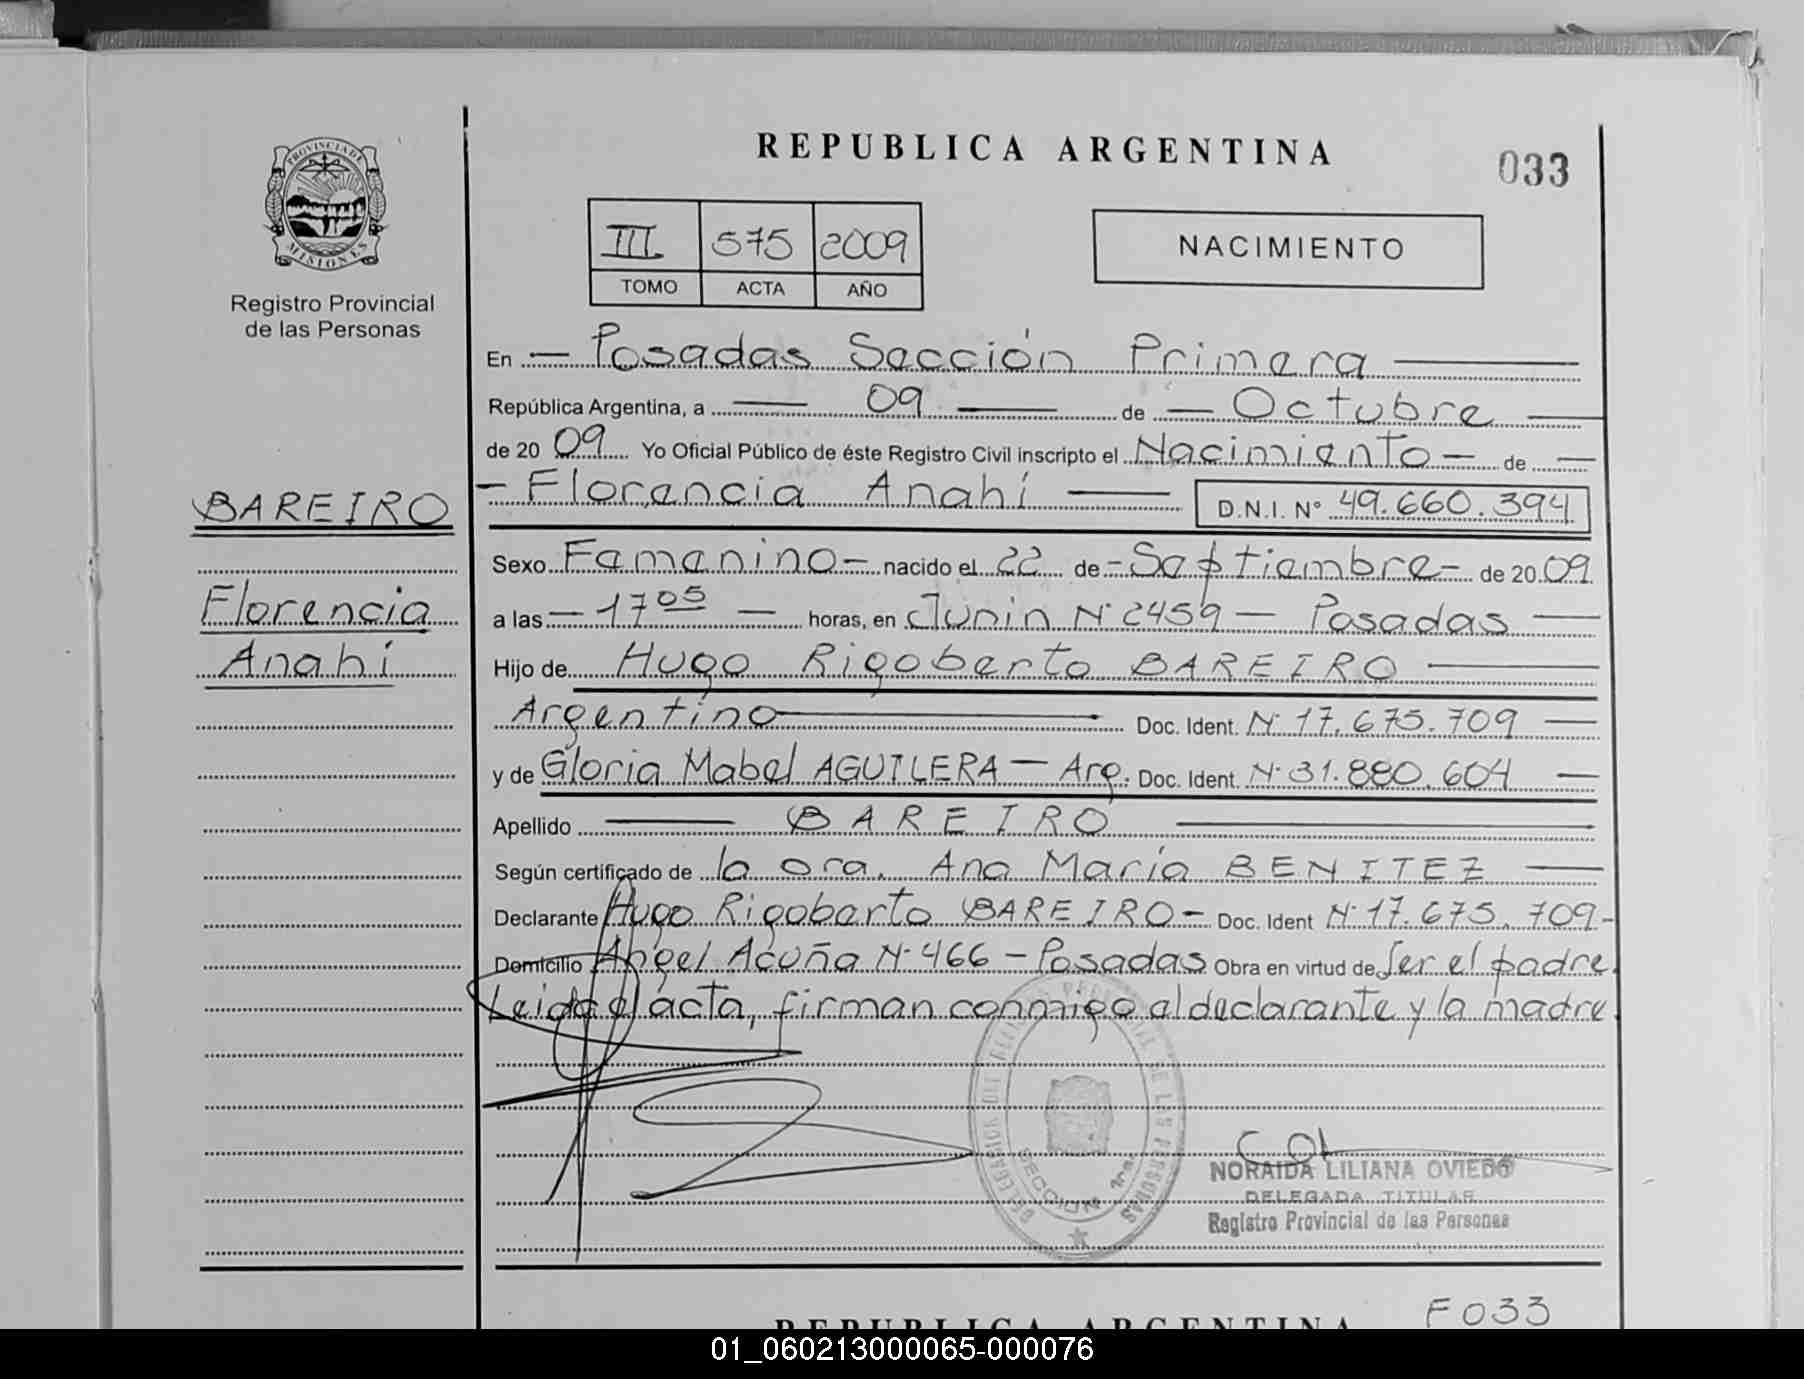 REPUBLICA ARGENTINA
033
PROVINCIA DE
MISIONES
Registro Provincial
de las Personas
III 575 2009
TOMO ACTA AÑO
NACIMIENTO
En — Posadas Sección Primera —
República Argentina, a — 09 — de — Octubre —
de 20 09 Yo Oficial Público de éste Registro Civil inscripto el Nacimiento — de —
— Florencia Anahí — D.N.I. N° 49.660.394
BAREIRO
Florencia
Anahí
Sexo Femenino — nacido el 22 de — Septiembre — de 20 09
a las — 17 05 — horas, en Junin N° 2459 — Posadas —
Hijo de Hugo Rigoberto BAREIRO —
Argentino — Doc. Ident. N° 17.675.709 —
y de Gloria Mabel AGUILERA — Arg. Doc. Ident. N° 31.880.604 —
Apellido — BAREIRO —
Según certificado de la Dra. Ana María BENITEZ —
Declarante Hugo Rigoberto BAREIRO — Doc. Ident N° 17.675.709 -
Domicilio Angel Acuña N° 466 — Posadas Obra en virtud de Ser el padre.
Leida el acta, firman conmigo el declarante y la madre.
DELEGACION DEL REGISTRO PROVINCIAL DE LAS PERSONAS
SECCION 1ra.
NORAIDA LILIANA OVIEDO
DELEGADA TITULAR
Registro Provincial de las Personas
F 033
REPUBLICA ARGENTINA
01_060213000065-000076